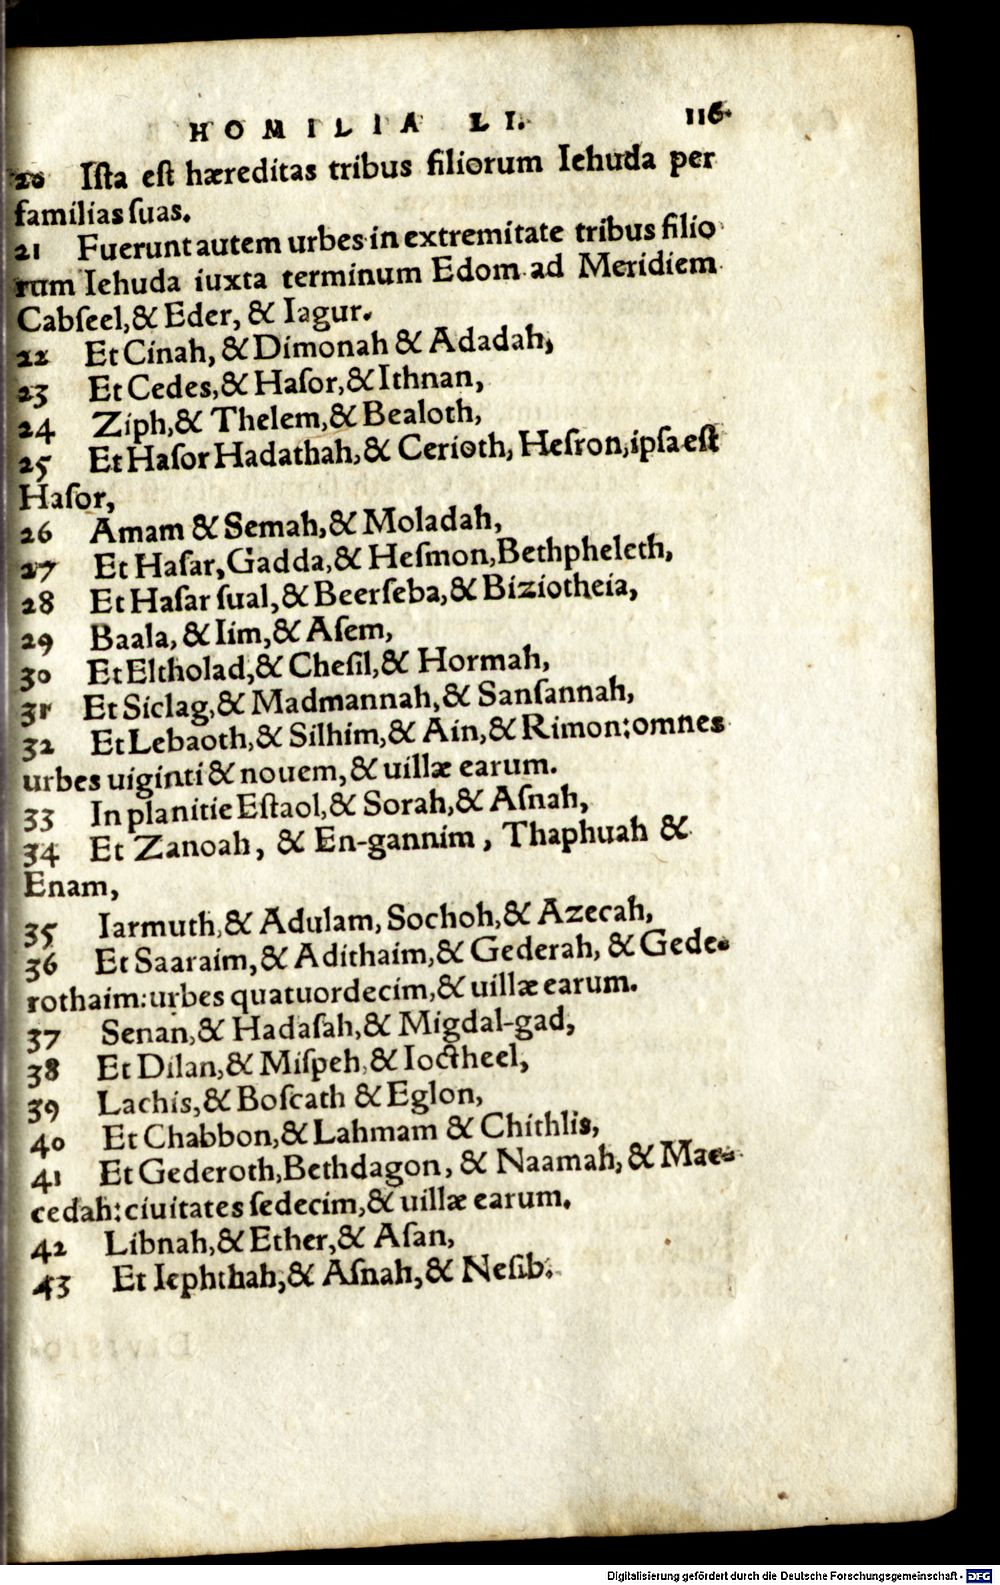 HOMILIA LI. 116.
20 Iſta eſt hæreditas tribus filiorum Iehuda per
familias ſuas.
21 Fuerunt autem urbes in extremitate tribus filio
rum Iehuda iuxta terminum Edom ad Meridiem
Cabſeel, & Eder, & Iagur.
22 Et Cinah, & Dimonah & Adadah,
23 Et Cedes, & Haſor, & Ithnan,
24 Ziph, & Thelem, & Bealoth,
25 Et Haſor Hadathah, & Cerioth, Heſron, ipſa eſt
Haſor,
26 Amam & Semah, & Moladah,
27 Et Haſar, Gadda, & Heſmon, Bethpheleth,
28 Et Haſar ſual, & Beerſeba, & Biziotheia,
29 Baala, & Iim, & Aſem,
30 Et Eltholad, & Cheſil, & Hormah,
31 Et Siclag, & Madmannah, & Sanſannah,
32 Et Lebaoth, & Silhim, & Ain, & Rimon: omnes
urbes uiginti & nouem, & uillæ earum.
33 In planitie Eſtaol, & Sorah, & Aſnah,
34 Et Zanoah, & En-gannim, Thaphuah &
Enam,
35 Iarmuth, & Adulam, Sochoh, & Azecah,
36 Et Saaraim, & Adithaim, & Gederah, & Gede-
rothaim: urbes quatuordecim, & uillæ earum.
37 Senan, & Hadaſah, & Migdal-gad,
38 Et Dilan, & Miſpeh, & Ioctheel,
39 Lachis, & Boſcath & Eglon,
40 Et Chabbon, & Lahmam & Chithlis,
41 Et Gederoth, Bethdagon, & Naamah, & Mac-
cedah: ciuitates ſedecim, & uillæ earum.
42 Libnah, & Ether, & Aſan,
43 Et Iephthah, & Aſnah, & Neſib.
Digitalisierung gefördert durch die Deutsche Forschungsgemeinschaft - DFG